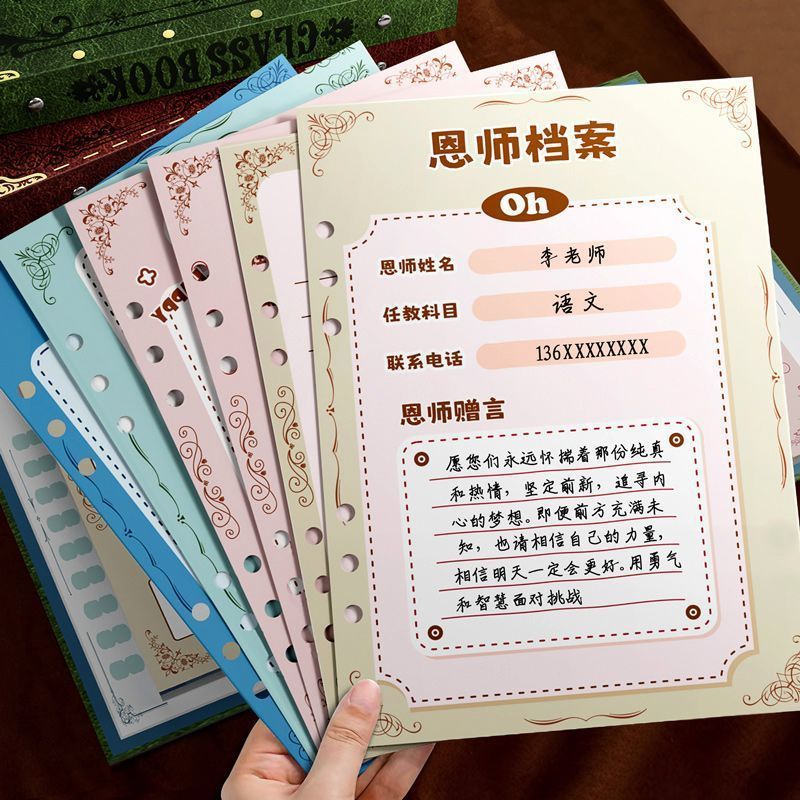 CLASS BOOK
恩师档案
Oh
恩师姓名 李老师
任教科目 语文
联系电话 136XXXXXXXX
恩师赠言
愿您们永远怀揣着那份纯真
和热情，坚定前新，追寻内
心的梦想。即便前方充满未
知，也请相信自己的力量，
相信明天一定会更好。用勇气
和智慧面对挑战